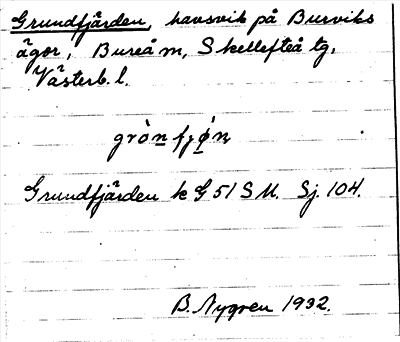 Grundfjärden, havsvik på Burviks
ägor, Bureå m, Skellefteå tg,
Västerb. l.
grò̀n fjø̀n
Grundfjärden k G 51 S U. Sj. 104.
B. Nygren 1932.